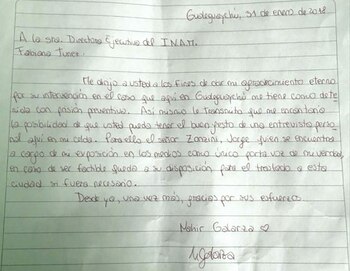 Gualeguaychú, 31 de enero de 2018
A la sra. Directora Ejecutiva del INAM.
Fabiana Tuñez:
Me dirijo a usted a los fines de dar mi agradecimiento eterno
por su intervención en el caso que aquí en Gualeguaychú me tiene como dete
nida con prisión preventiva. Así mismo le transmito que me encantaría
la posibilidad de que usted pueda tener el buen gesto de una entrevista perso
nal aquí en mi celda. Para ello el señor Zonzini, Jorge quien se encuentra
a cargo de mi exposición en los medios como único porta voz de mi verdad,
en caso de ser factible queda a su disposición para el traslado a esta
ciudad si fuera necesario.
Desde ya, una vez más, gracias por sus esfuerzos
Nahir Galarza
NGalarza